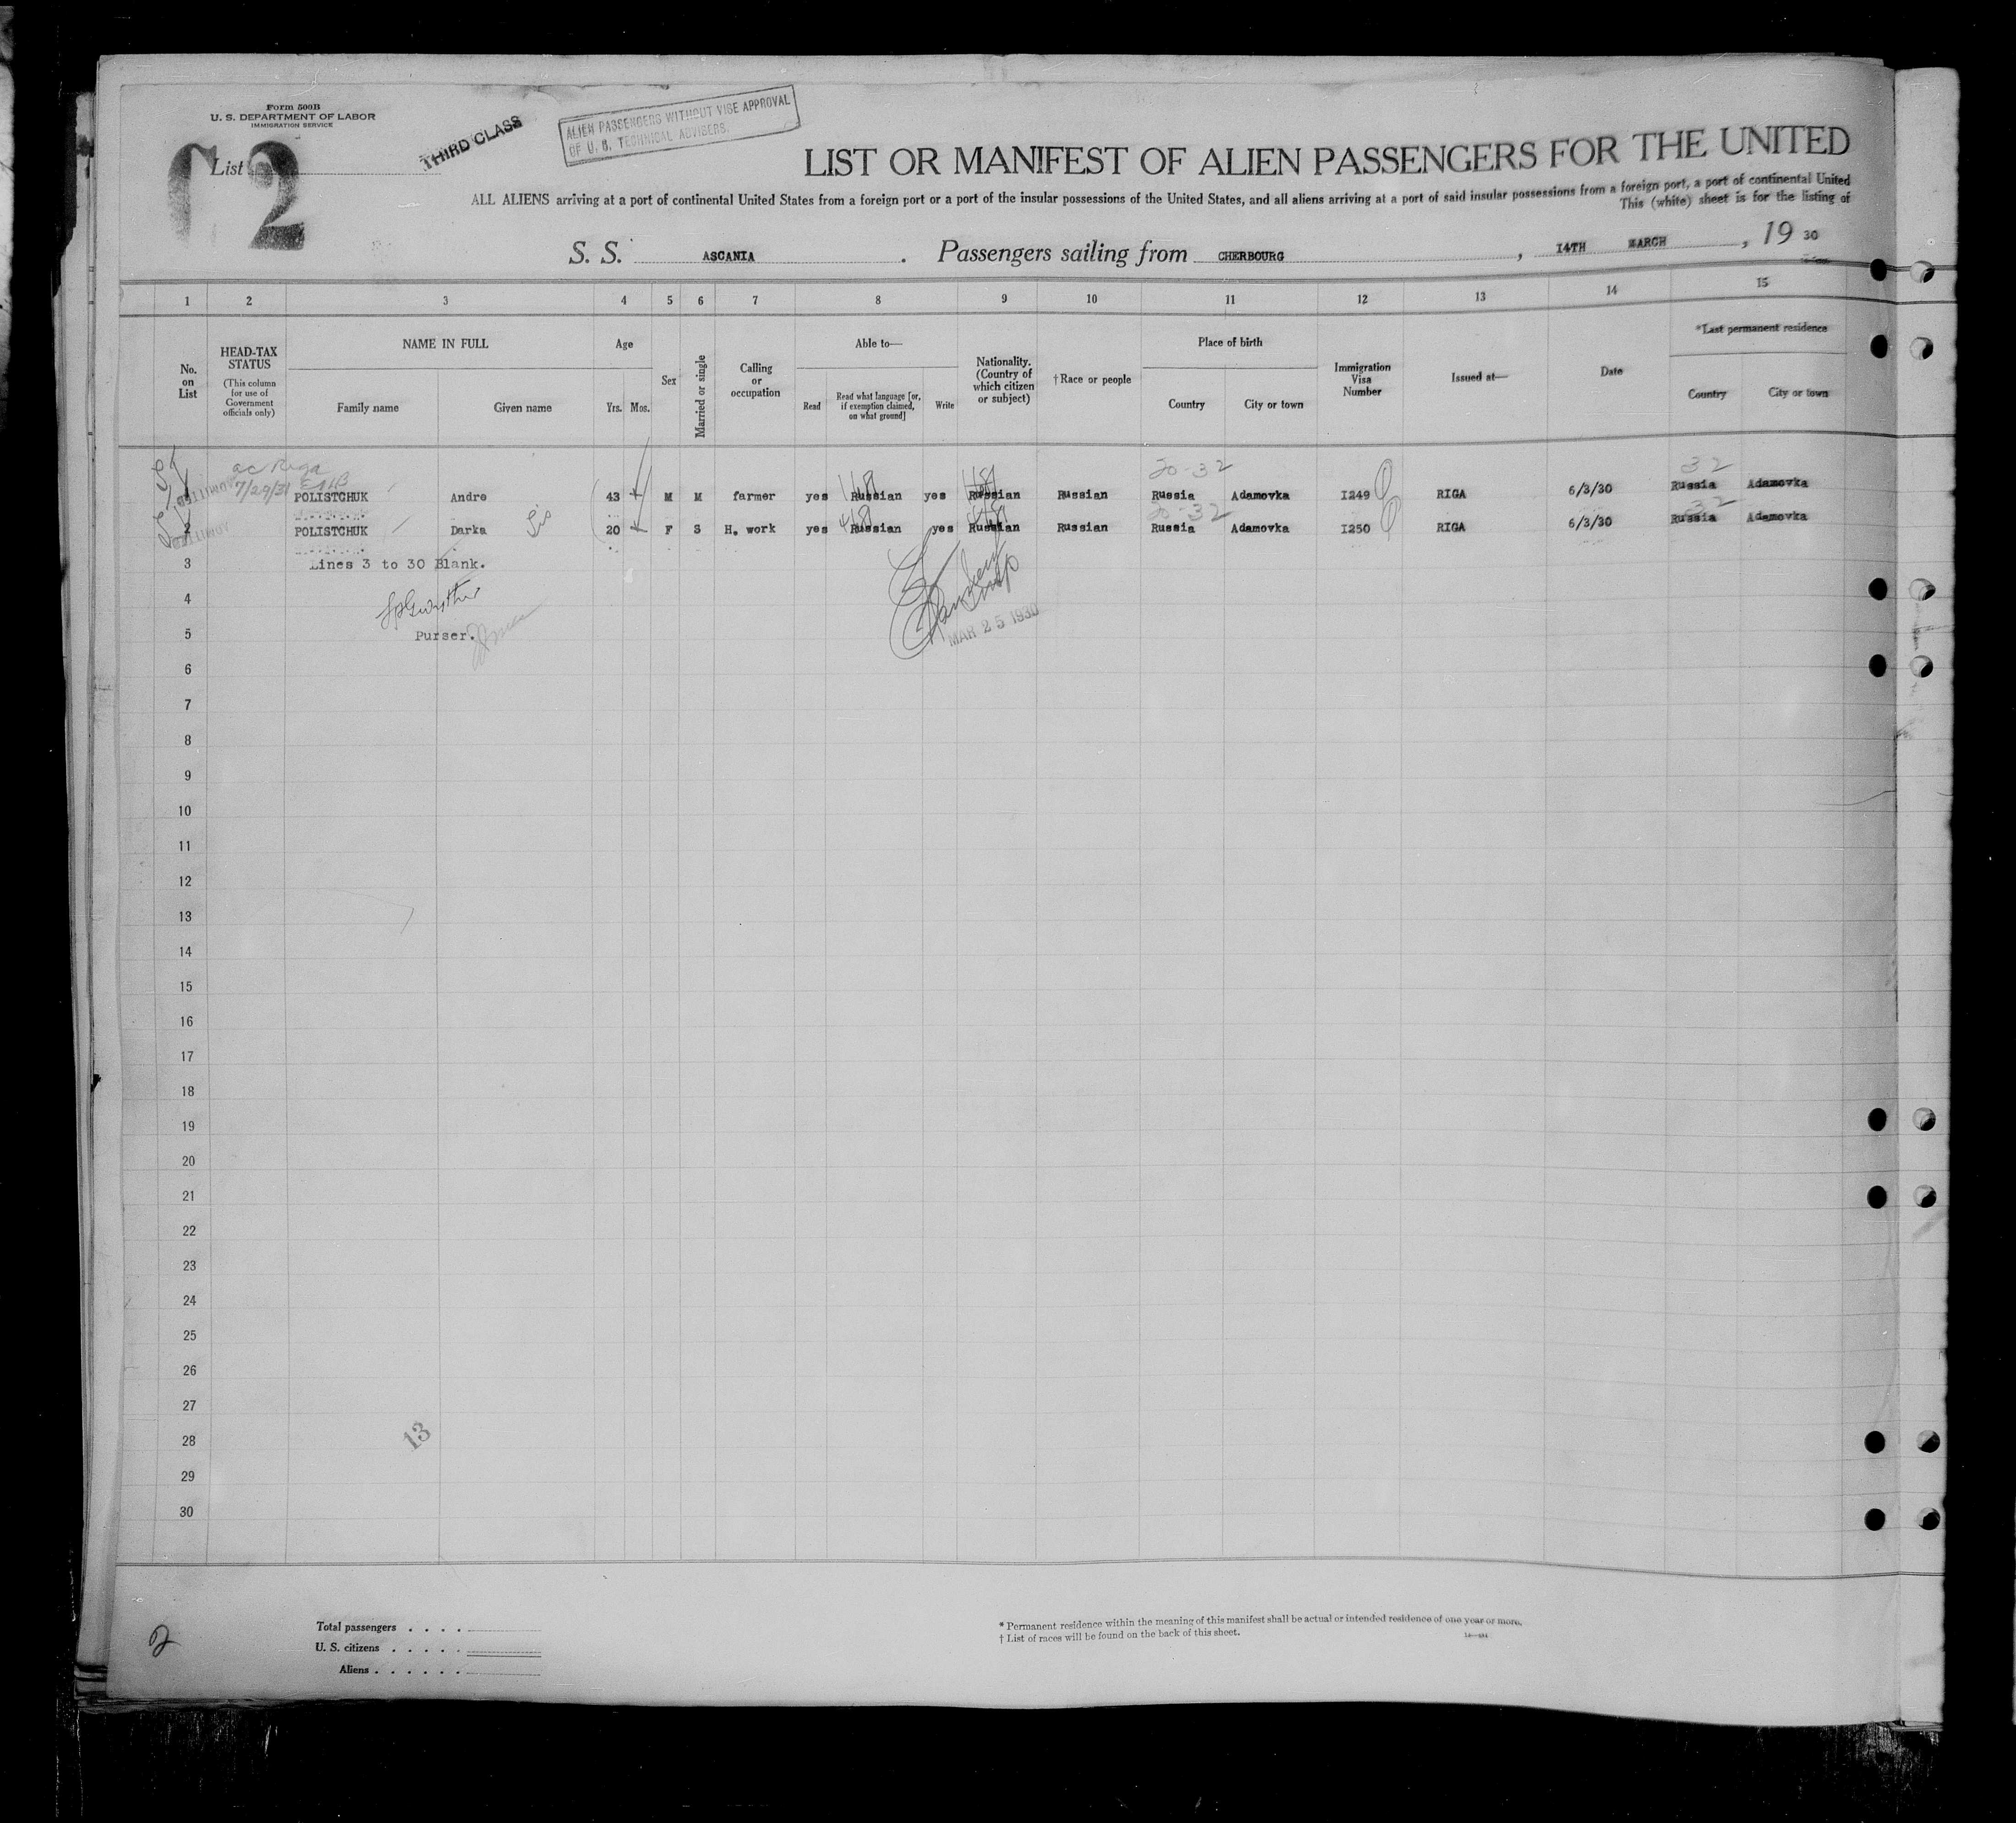 Form 500B
U. S. DEPARTMENT OF LABOR
IMMIGRATION SERVICE
List 2
THIRD CLASS
ALIEN PASSENGERS WITHOUT VISE APPROVAL
OF U. S. TECHNICAL ADVISERS.
LIST OR MANIFEST OF ALIEN PASSENGERS FOR THE UNITED
ALL ALIENS arriving at a port of continental United States from a foreign port or a port of the insular possessions of the United States, and all aliens arriving at a port of said insular possessions from a foreign port, a port of continental United
This (white) sheet is for the listing of
S. S. ASCANIA . Passengers sailing from CHERBOURG , 14TH MARCH , 19 30
1 2 3 4 5 6 7 8 9 10 11 12 13 14 15
No. on List
HEAD-TAX STATUS
(This column for use of Government officials only)
NAME IN FULL
Family name Given name
Age
Yrs. Mos.
Sex
Married or single
Calling or occupation
Able to—
Read
Read what language [or, if exemption claimed, on what ground]
Write
Nationality. (Country of which citizen or subject)
†Race or people
Place of birth
Country City or town
Immigration Visa Number
Issued at—
Date
*Last permanent residence
Country City or town
ac Riga
7/29/31
20-32 32
1 POLISTCHUK Andre 43 M M farmer yes Russian yes Russian Russian Russia Adamovka I249 RIGA 6/3/30 Russia Adamovka
20-32 32
2 POLISTCHUK Darka 20 F S H. work yes Russian yes Russian Russian Russia Adamovka I250 RIGA 6/3/30 Russia Adamovka
3 Lines 3 to 30 Blank.
4
5 Purser. MAR 25 1930
6
7
8
9
10
11
12
13
14
15
16
17
18
19
20
21
22
23
24
25
26
27
28
13
29
30
2
Total passengers . . . .
U. S. citizens . . . . .
Aliens . . . . . .
* Permanent residence within the meaning of this manifest shall be actual or intended residence of one year or more.
† List of races will be found on the back of this sheet.